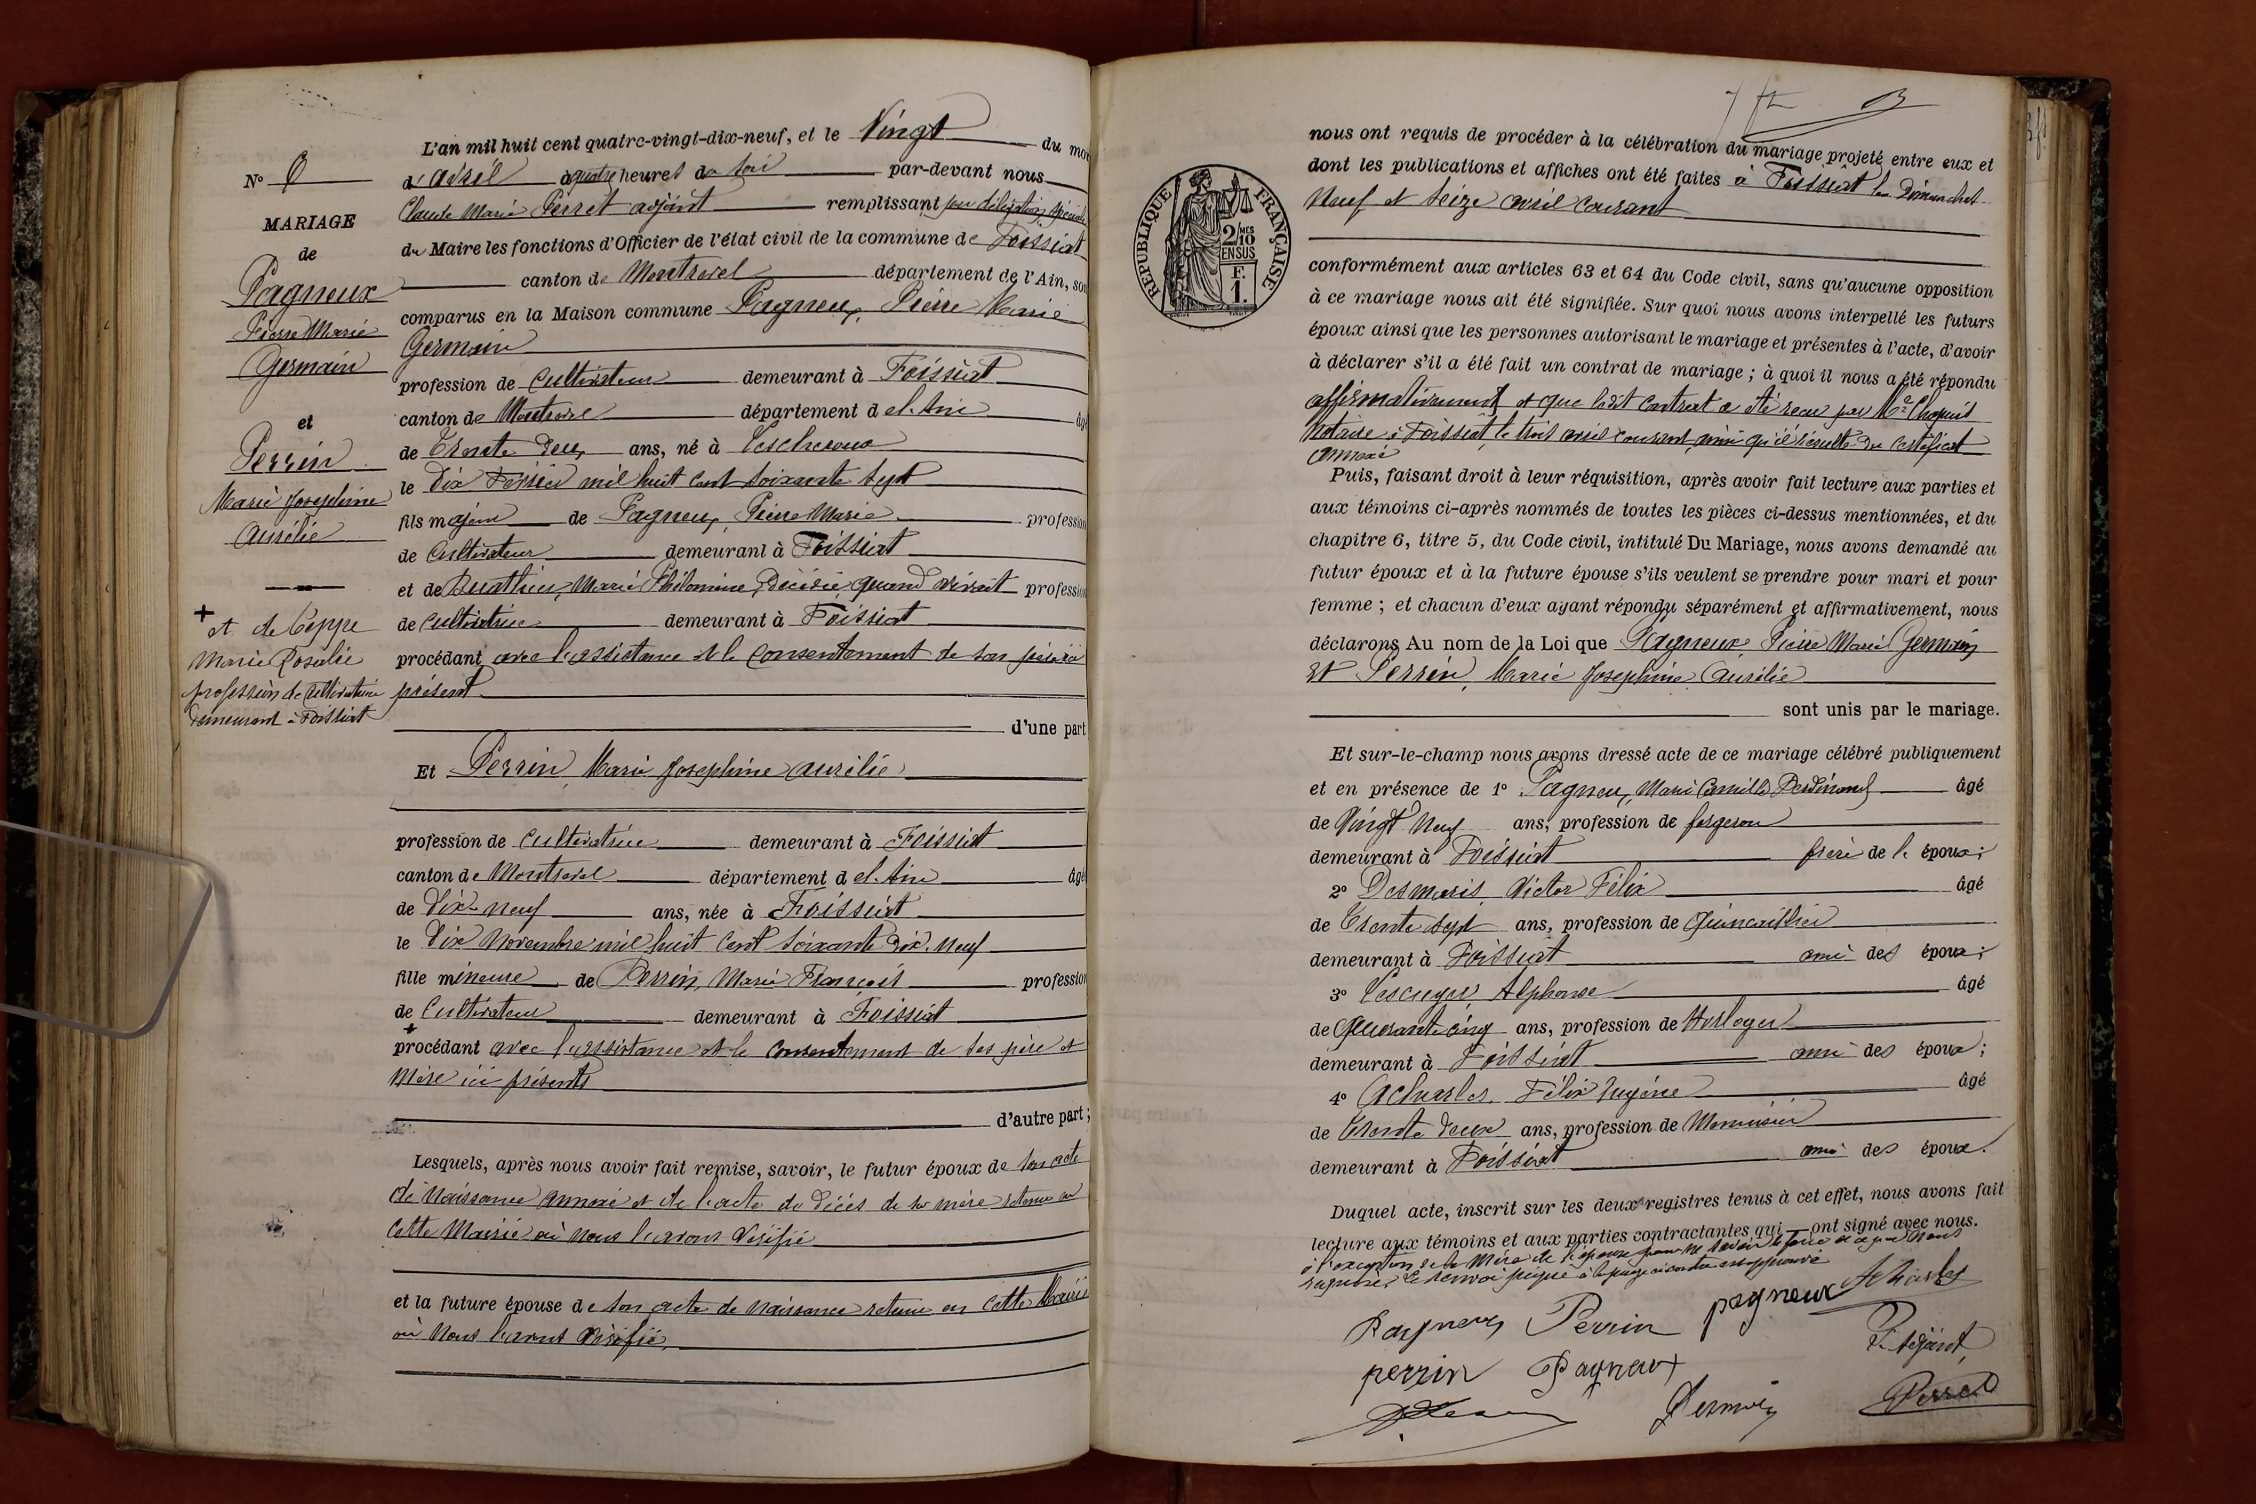 L'an mil huit cent quatre-vingt-dix-neuf, et le Vingt du mois
N° 6
d'avril à quatre heures du soir par-devant nous
Claude Marie Perret adjoint remplissant par délégation spéciale
MARIAGE
du Maire les fonctions d'Officier de l'état civil de la commune de Foissiat
de
canton de Montrevel département de l'Ain, sont
Pagneux
comparus en la Maison commune Pagneux, Pierre Marie
Pierre Marie
Germain
Germain
profession de Cultivateur demeurant à Foissiat
canton de Montrevel département de l'Ain âgé
et
de Trente deux ans, né à Lescheroux
Perrin
le Dix Février mil huit cent soixante sept
Marie Josephine
fils majeur de Pagneux, Pierre Marie profession
Aurélie
de Cultivateur demeurant à Foissiat
et de Buathier, Marie Philomine, Décédée quand vivait profession
de Cultivatrice demeurant à Foissiat
procédant avec l'assistance et le consentement de son père ici
présent
+
et de Coppe
Marie Rosalie
profession de Cultivatrice
demeurant à Foissiat
d'une part
Et Perrin Marie Josephine Aurélie
profession de Cultivatrice demeurant à Foissiat
canton de Montrevel département de l'Ain âgé
de Dix-neuf ans, née à Foissiat
le Dix Novembre mil huit cent soixante Dix-neuf
fille mineure de Perrin, Marie François profession
de Cultivateur demeurant à Foissiat
+
procédant avec l'assistance et le consentement de ses père et
Mère ici présents
d'autre part ;
Lesquels, après nous avoir fait remise, savoir, le futur époux de son acte
de Naissance annexé et de l'acte de décès de sa mère retenu en
cette Mairie où Nous l'avons Vérifié
et la future épouse de son acte de naissance retenu en cette Mairie
où Nous l'avons Vérifié
nous ont requis de procéder à la célébration du mariage projeté entre eux et
dont les publications et affiches ont été faites à Foissiat les Dimanches
Neuf et Seize avril courant
RÉPUBLIQUE FRANÇAISE
2/10 MES
EN SUS
F.
1.
conformément aux articles 63 et 64 du Code civil, sans qu'aucune opposition
à ce mariage nous ait été signifiée. Sur quoi nous avons interpellé les futurs
époux ainsi que les personnes autorisant le mariage et présentes à l'acte, d'avoir
à déclarer s'il a été fait un contrat de mariage ; à quoi il nous a été répondu
affirmativement et que ledit contrat a été reçu par Me Chapuis
Notaire à Foissiat le trois avril courant, ainsi qu'il résulte du Certificat
annexé
Puis, faisant droit à leur réquisition, après avoir fait lecture aux parties et
aux témoins ci-après nommés de toutes les pièces ci-dessus mentionnées, et du
chapitre 6, titre 5, du Code civil, intitulé Du Mariage, nous avons demandé au
futur époux et à la future épouse s'ils veulent se prendre pour mari et pour
femme ; et chacun d'eux ayant répondu séparément et affirmativement, nous
déclarons Au nom de la Loi que Pagneux, Pierre Marie Germain
et Perrin, Marie Josephine Aurélie
sont unis par le mariage.
Et sur-le-champ nous avons dressé acte de ce mariage célébré publiquement
et en présence de 1° Pagneux, Marie Camille Ferdinand âgé
de Vingt Neuf ans, profession de forgeron
demeurant à Foissiat frère de l' époux ;
2° Desmaris Victor Félix âgé
de Trente sept ans, profession de Quincaillier
demeurant à Foissiat ami des époux ;
3° Lescuyer Alphonse âgé
de Quarante cinq ans, profession de Horloger
demeurant à Foissiat ami des époux ;
4° Acharles Félix Eugène âgé
de Trente Deux ans, profession de Menuisier
demeurant à Foissiat ami des époux.
Duquel acte, inscrit sur les deux registres tenus à cet effet, nous avons fait
lecture aux témoins et aux parties contractantes qui ont signé avec nous.
à l'exception de la Mère de l'épouse pour ne savoir le faire de ce par Nous
requise. Le renvoi piqué à la page ci contre est approuvé
Pagneux Perrin pagneux Acharles
perrin Pagneux L'Adjoint,
Desmaris Perret